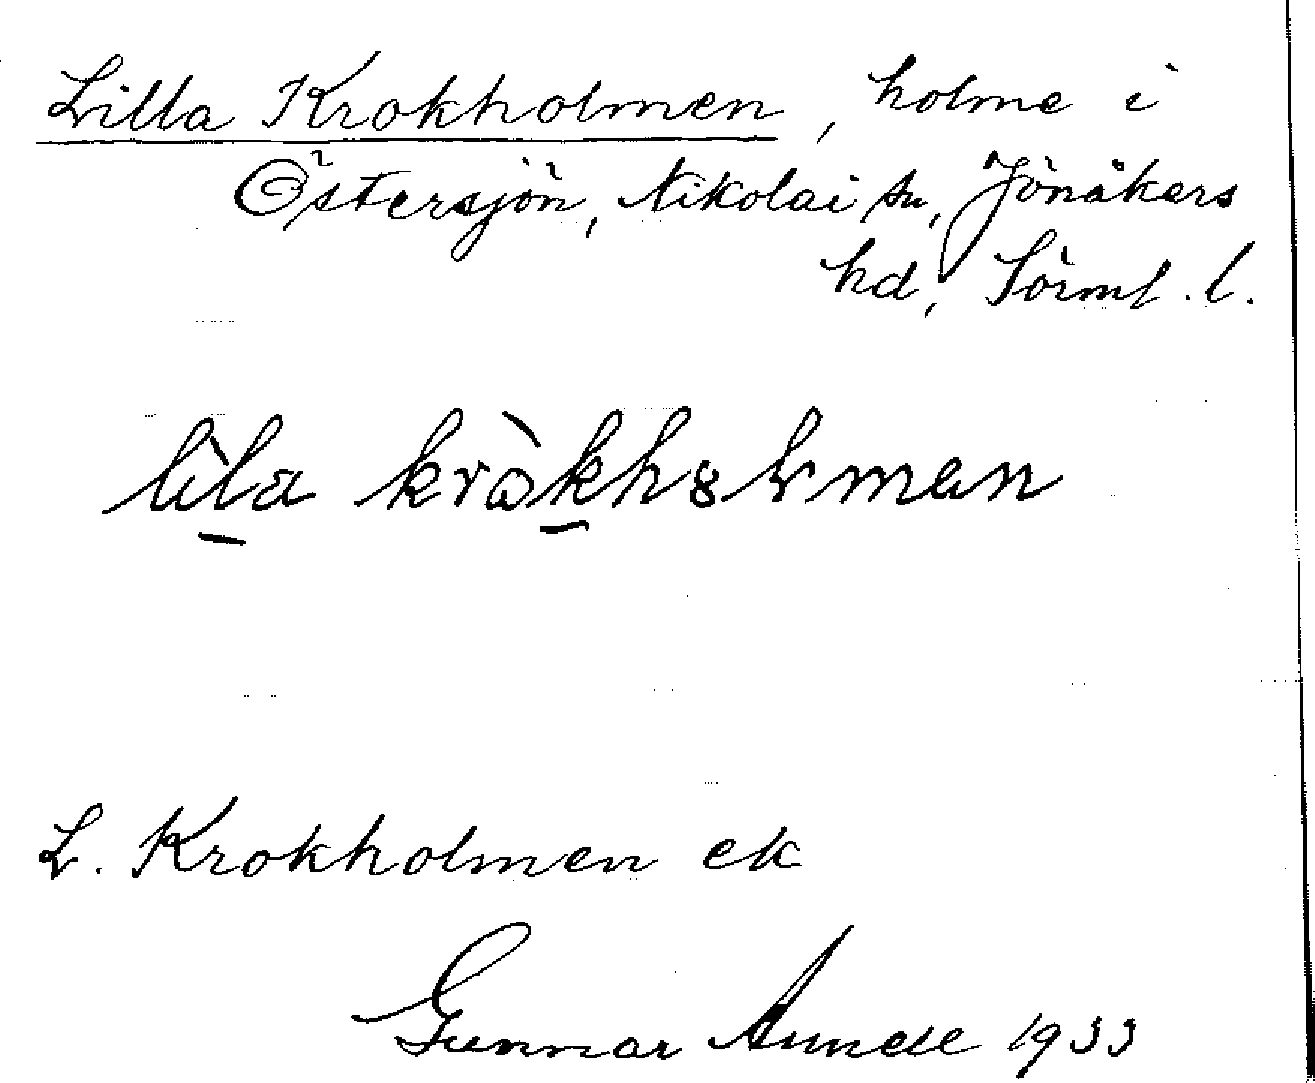 Lilla Krokholmen, holme i
Östersjön, Nikolai sn, Jönåkers
hd, Sörml. l.
lìla
L. Krokholmen ek
Gunnar 1933